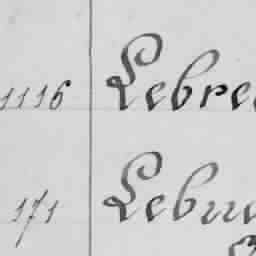 1116 Lebre
171 Lebru